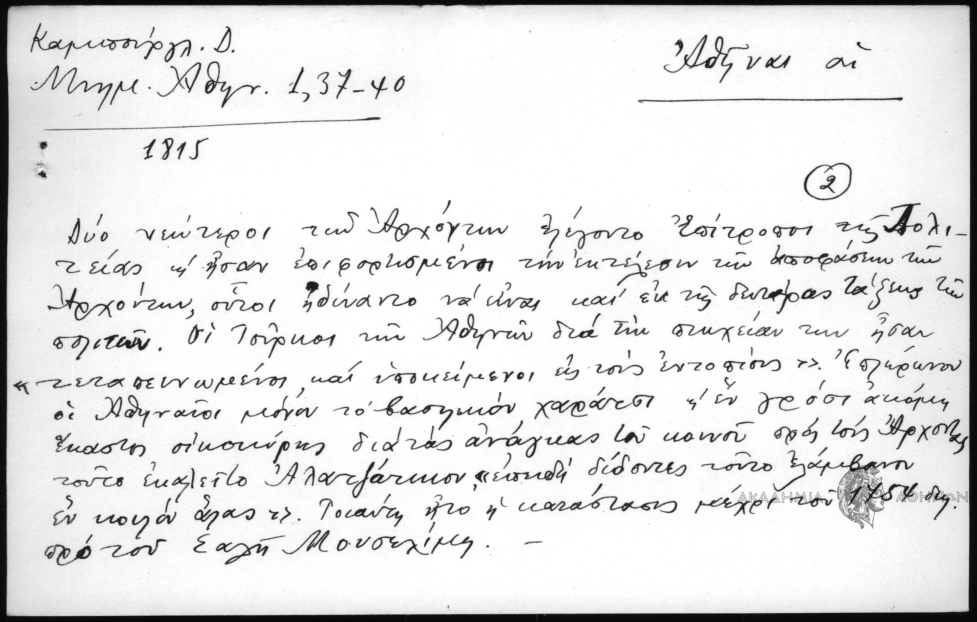 Καμπούργλ. Δ.
Μνημ. Ἀθην. 1, 37-40
Ἀθῆναι αἱ
1815
2
Δύο νεώτεροι τῶν Ἀρχόντων ἐλέγοντο Ἐπίτροποι τῆς Πολι-
τείας κ ἦσαν ἐπιφορτισμένοι τὴν ἐκτέλεσιν τῶν ἀποφάσεων τῶν
Ἀρχόντων, οὗτοι ἠδύναντο νὰ εἶναι καὶ ἐκ τῆς δευτέρας τάξεως τῶν
πολιτῶν. Οἱ Τοῦρκοι τῶν Ἀθηνῶν διὰ τὴν πτωχείαν των ἦσαν
« τεταπεινωμένοι, καὶ ὑποκείμενοι εἰς τοὺς ἐντοπίους ». Ἐπλήρωνον
οἱ Ἀθηναῖοι μόνον τὸ βασιλικὸν χαράτσι κ ἓν γρόσι ἀκόμη
ἕκαστος οἰκοκύρης διὰ τὰς ἀνάγκας τοῦ κοινοῦ πρὸς τοὺς Ἄρχοντας
τοῦτο ἐκαλεῖτο Ἁλατζάτικον « ἐπειδὴ δίδοντες τοῦτο ἐλάμβανον
ἓν κοιλὸν ἅλας ». Τοιαύτη ἦτο ἡ κατάστασις μέχρι τοῦ 1754 δηλ.
πρὸ τοῦ Σαλῆ Μουσελίμη. –
ΑΚΑΔΗΜΙΑ ΑΘΗΝΩΝ